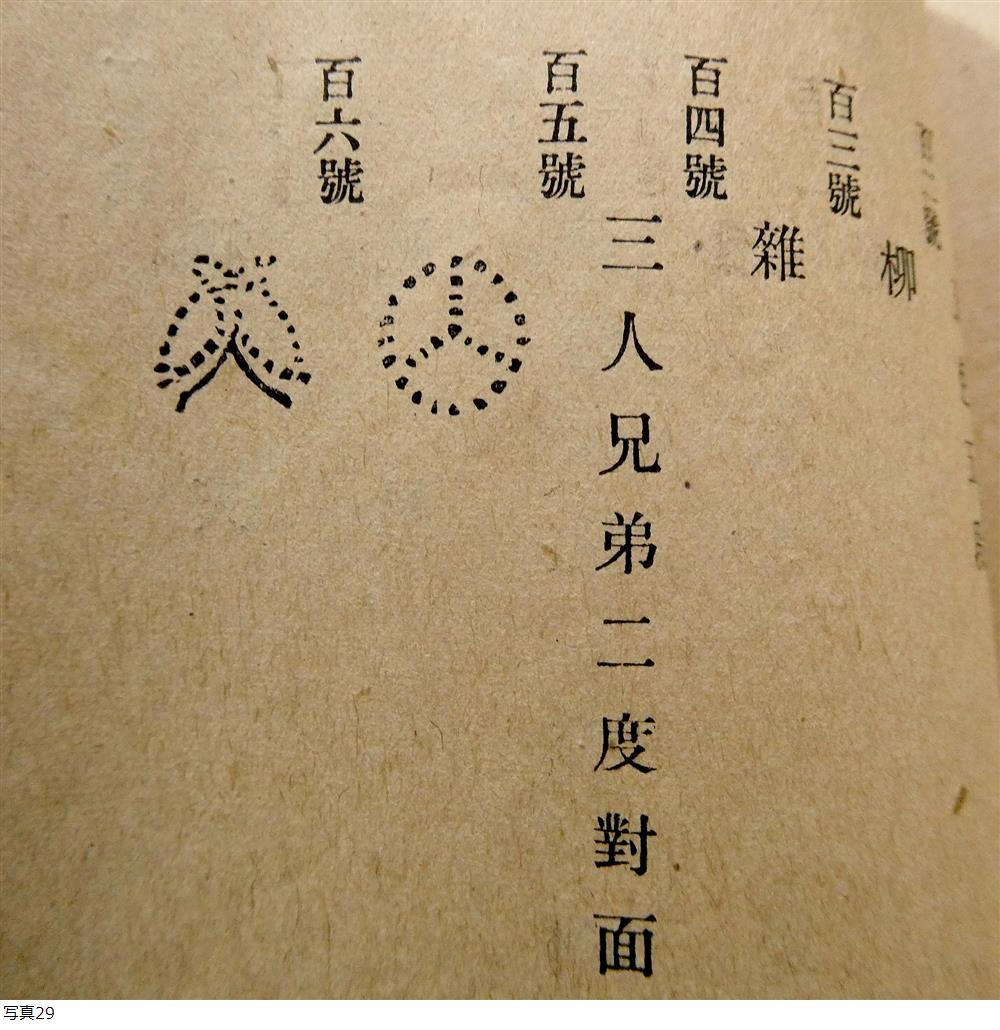 百二號
柳
百三號
雜
百四號
三人兄弟二度對面
百五號
百六號
写真29